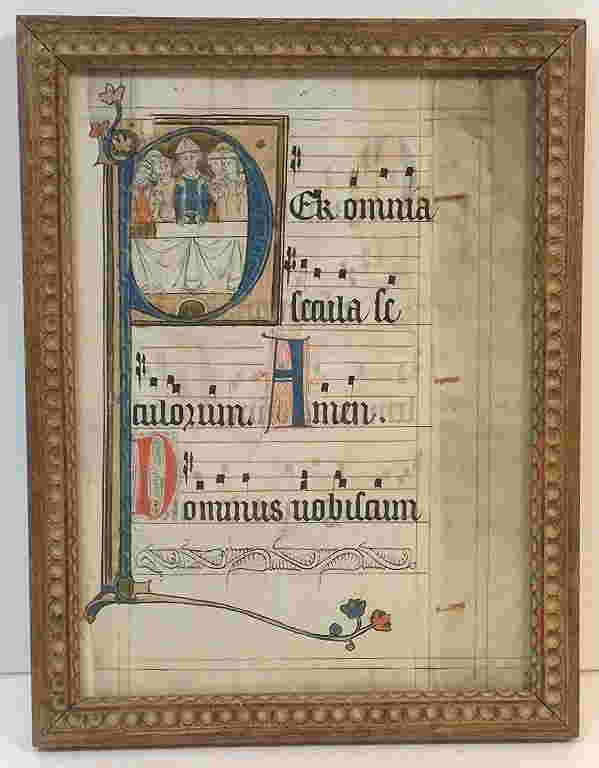 PER omnia
secula se
culorum. Amen.
Dominus uobiscum